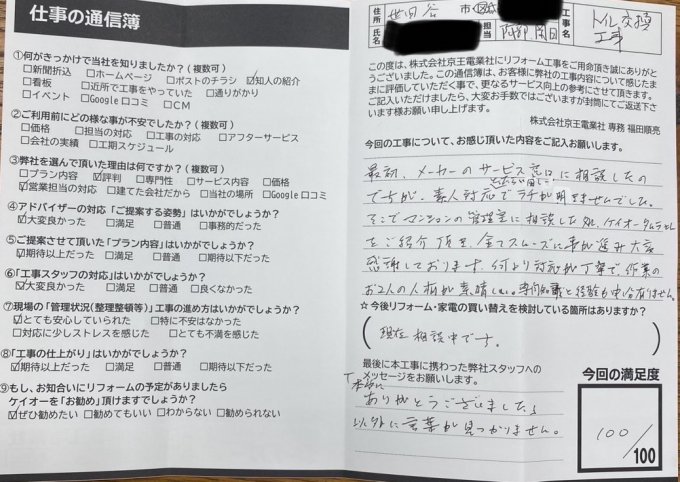 仕事の通信簿
①何がきっかけで当社を知りましたか?(複数可)
□新聞折込 □ホームページ □ポストのチラシ ☑知人の紹介
□看板 □近所で工事をやっていた □通りがかり
□イベント □Google口コミ □CM
②ご利用前にどの様な事が不安でしたか?(複数可)
□価格 □担当の対応 □工事の対応 □アフターサービス
□会社の実績 □工期スケジュール
③弊社を選んで頂いた理由は何ですか?(複数可)
□プラン内容 ☑評判 □専門性 □サービス内容 □価格
☑営業担当の対応 □建てた会社だから □当社の場所 □Google口コミ
④アドバイザーの対応「ご提案する姿勢」はいかがでしょうか?
☑大変良かった □満足 □普通 □事務的だった
⑤ご提案させて頂いた「プラン内容」はいかがでしょうか?
☑期待以上だった □満足 □普通 □期待以下だった
⑥「工事スタッフの対応」はいかがでしょうか?
☑大変良かった □満足 □普通 □良くなかった
⑦現場の「管理状況(整理整頓等)」工事の進め方はいかがでしょうか?
☑とても安心していられた □特に不安はなかった
□対応に少しストレスを感じた □とても不満を感じた
⑧「工事の仕上がり」はいかがでしょうか?
☑期待以上だった □満足 □普通 □期待以下だった
⑨もし、お知合いにリフォームの予定がありましたら
ケイオーを「お勧め」頂けますでしょうか?
☑ぜひ勧めたい □勧めてもいい □わからない □勧められない
住所 世田谷 市・区
氏名
担当 阿部
工事名 トイレ交換工事
この度は、株式会社京王電業社にリフォーム工事をご用命頂き誠にありがとうございました。この通信簿は、お客様に弊社の工事内容について感じたまま評価していただく事で、更なるサービス向上の参考にさせて頂きます。
ご記入いただけましたら、大変お手数ではございますが封筒にてご返送下さいます様お願い申し上げます。
株式会社京王電業社 専務 福田順亮
今回の工事について、お感じ頂いた内容をご記入お願いします。
最初、メーカーのサービス窓口に相談したの
ですが、素人対応でラチが明きませんでした。
そこでマンションの管理室に相談した処、ケイオー
をご紹介頂き、全てスムーズに事が進み大変
感謝しております。何より対応が丁寧で、作業の
お2人の人柄が素晴しい。専門知識と経験も申し分ありません。
☆今後リフォーム・家電の買い替えを検討している箇所はありますか?
(現在相談中です。)
最後に本工事に携わった弊社スタッフへの
メッセージをお願いします。
「本当に
ありがとうございました」
以外に言葉が見つかりません。
今回の満足度
100/100